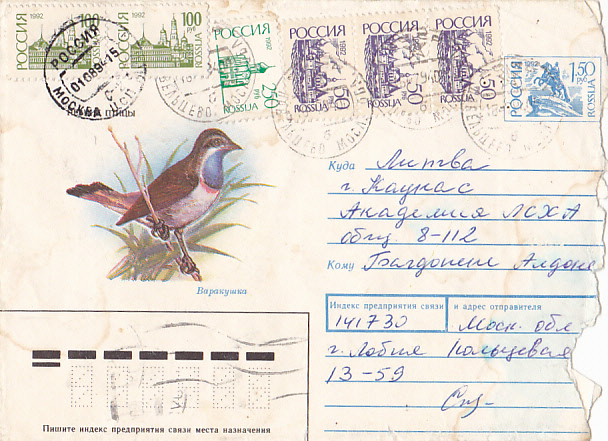 РОССИЯ 1992 100 руб ROSSIJA
РОССИЯ 1992 100 руб ROSSIJA
РОССИЯ 1992 250 руб ROSSIJA
РОССИЯ 1992 50 ROSSIJA
РОССИЯ 1992 50 ROSSIJA
РОССИЯ 1992 50 ROSSIJA
РОССИЯ 1992 1,50 РУБ ROSSIJA
РОССИЯ
010894-15
МОСКВА
птицы
Варакушка
Куда Литва
г. Каунас
Академия ЛСХА
общ. 8-112
Кому Алдоне
Индекс предприятия связи и адрес отправителя
141730 Моск. обл
г. Лобня
13-59
Пишите индекс предприятия связи места назначения